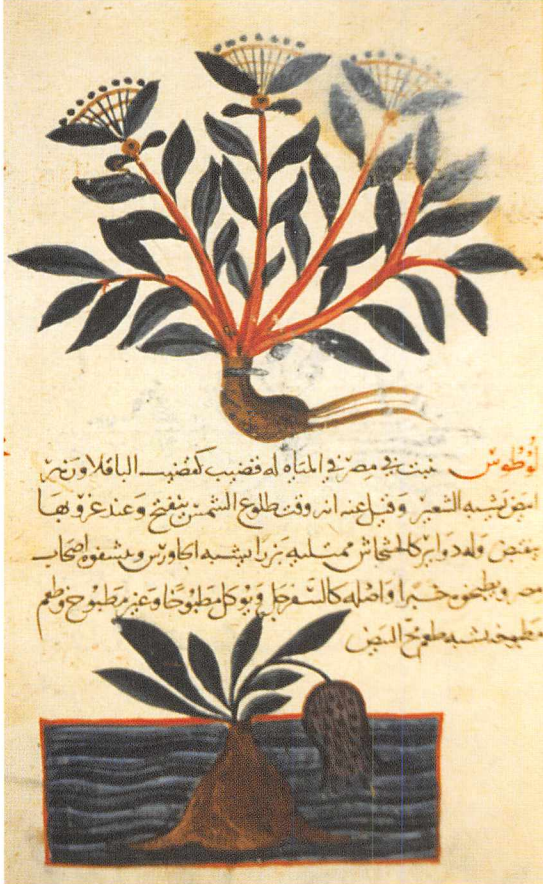 لوطوس نبت في مصر في المياه له قضيب كقضيب الباقلا وزهر
ابيض يشبه الشعير وقيل عنه انه وقت طلوع الشمس ينفتح وعند غروبها
ينقبض وله دواير كالخشاش ممتليه بزرا يشبه الجاورس ويشفوه اصحاب
مصر ويطبخوه خبزا واصله كالسفرجل ويوكل مطبوخا وغير مطبوخ وطعم
مطبوخه يشبه طعم مح البيض